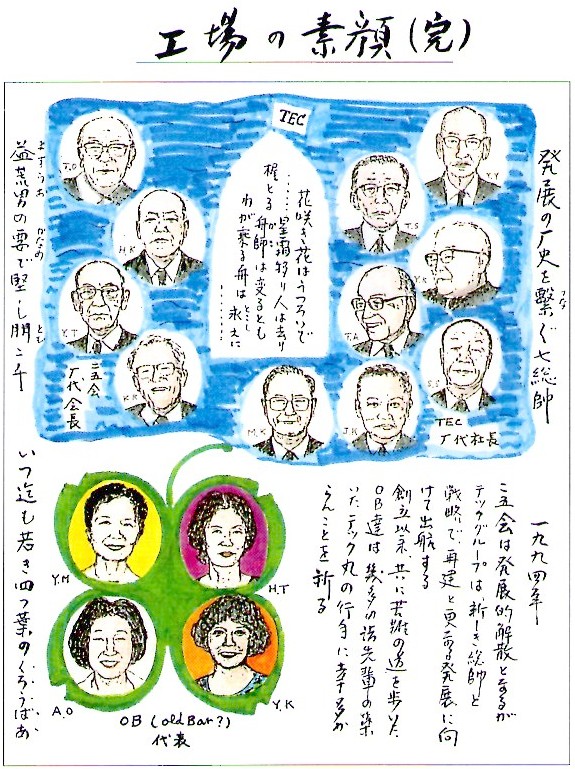 工場の素顔(完)
発展の厂史を繋ぐ七総師
つな
TEC
花咲き花はうつろいて
……星霜移り人は去り
梶とる舟師は変るとも
わが乗る舟は永久に
とこし
……
益荒男の要で堅し
ますらお
Y.Y
T.S
Y.K
T.A
S.S
M.K
H.K
Y.T
K.K
TEC
厂代社長
二五会
厂代会長
一九九四年
二五会は発展的解散となるが
テックグループは新しき総帥と
戦略で再建と更なる発展に向
けて出航する
創立以来、共に苦難の道を歩いた
OB達は幾多の諸先輩の築
いたテック丸の行手に幸多か
らんことを祈る
いつ迄も若き四つ葉のくろうばあ
Y.M
H.T
A.O
Y.K
OB (old Bar?)
代表